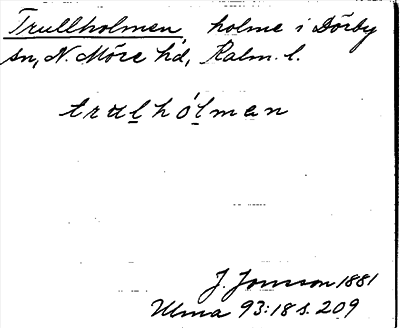 Trullholmen, holme i Dörby
sn, N. Möre hd, Kalm. l.
trul̲hól̲man
J. Jonsson 1881
Ulma 93:18 s. 209